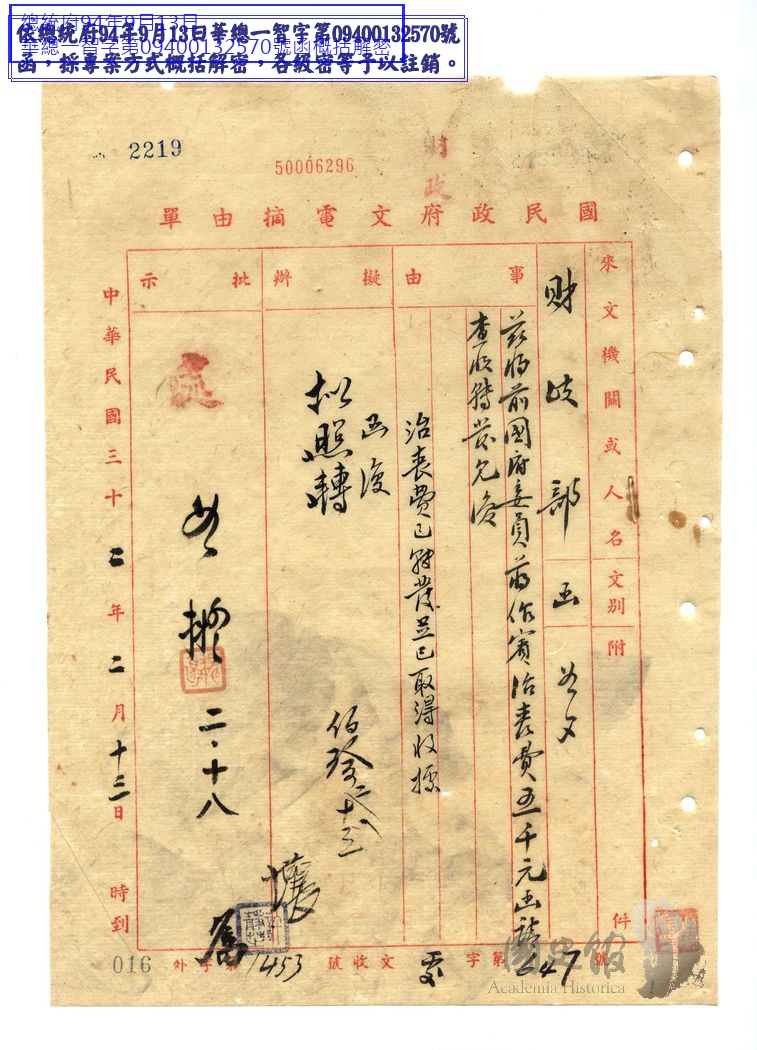 總統府94年9月13日
華總一智字第09400132570號函概括解密
依總統府94年9月13日華總一智字第09400132570號
函，採專案方式概括解密，各級密等予以註銷。
2219
50006296
財政
國民政府文電摘由單
來文機關或人名
財政部
文別
函
附
件
事由
茲將前國府委員蔣作賓治喪費五千元函請
查收轉發見復
治喪費已轉發並已取得收據
擬辦
函復
拟照轉
批示
如擬
二・十八
中華民國三十二年二月十三日 時到
字第647號
收文號
1453
字外
016
國史館
Academia Historica